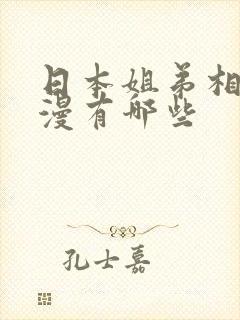 日本姐弟相
漫有哪些
孔士嘉